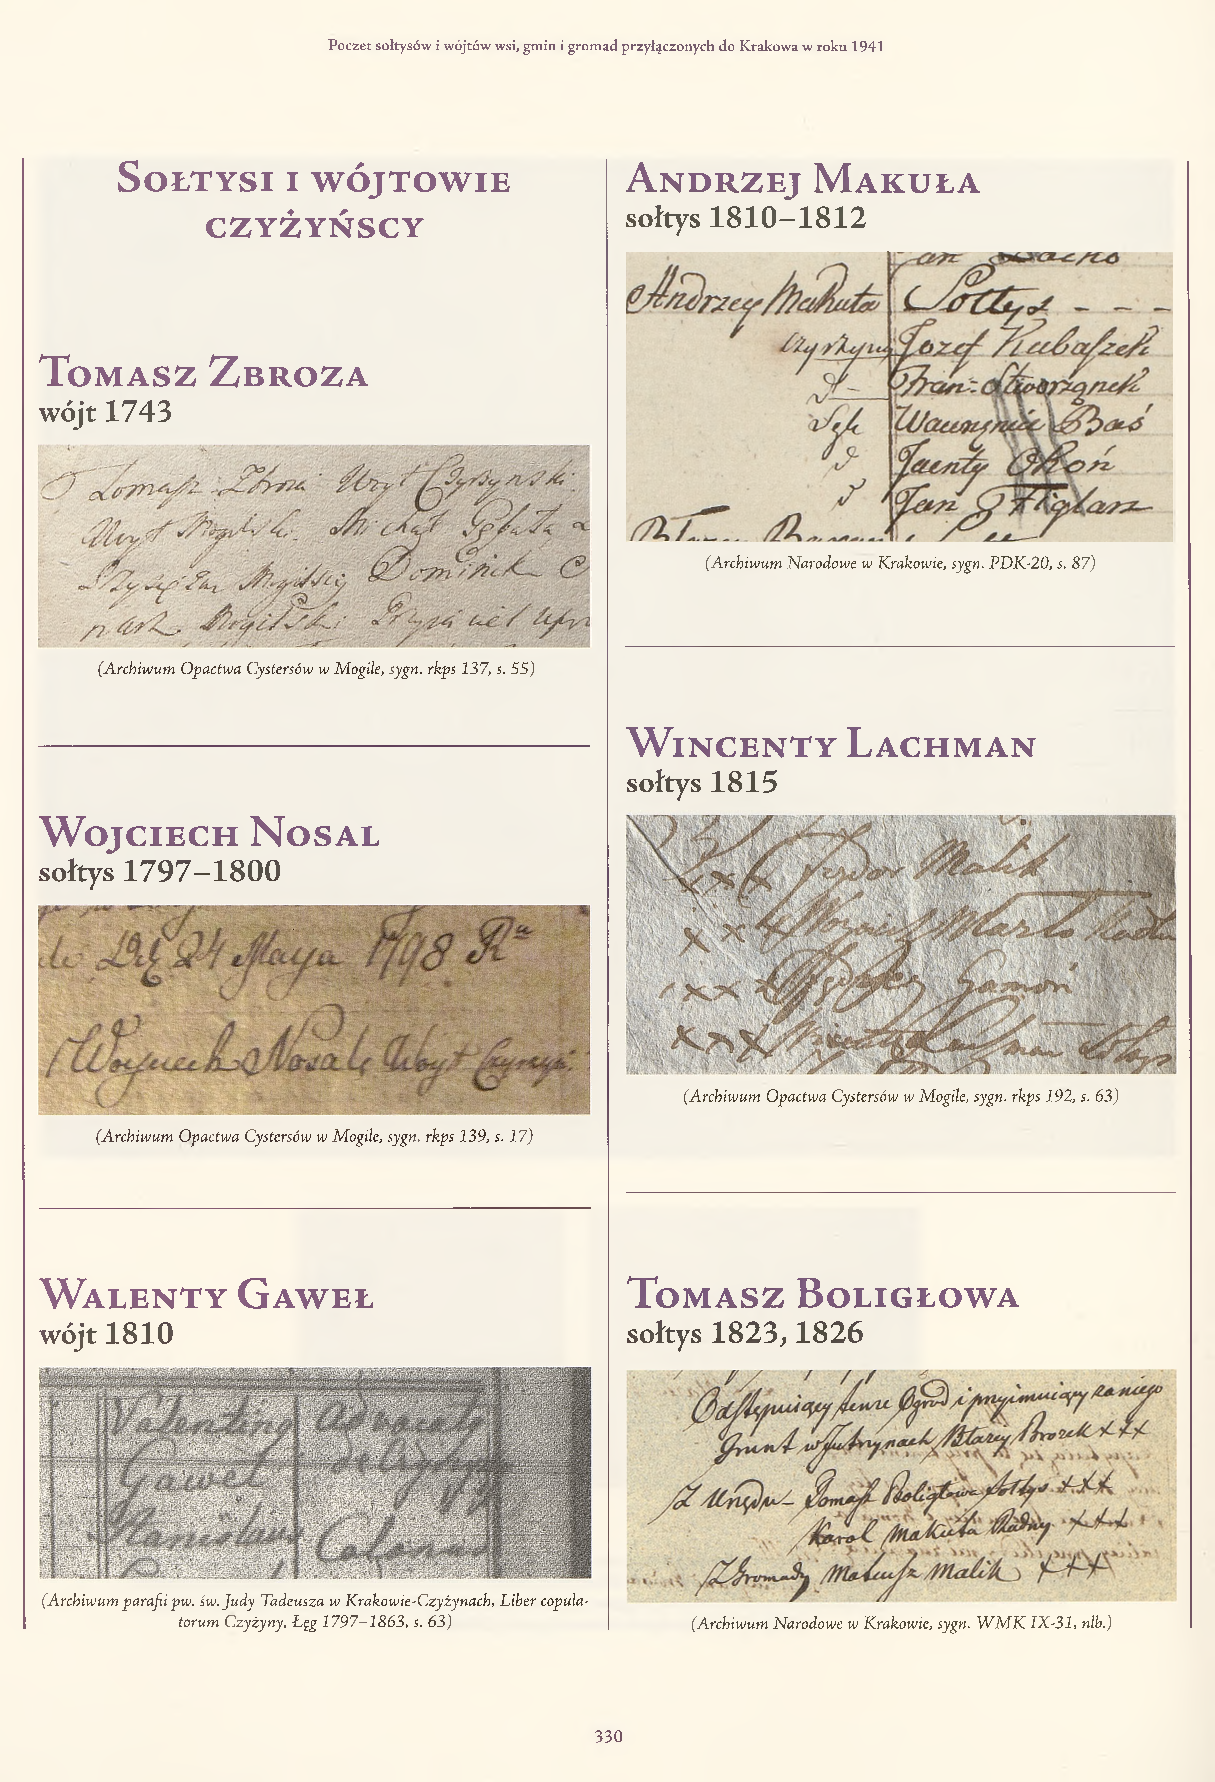 Poczet sołtysów i wójtów wsi, gmin i gromad przyłączonych do Krakowa w roku 1941
Sołtysi i wójtowie
czyżyńscy
Tomasz Zbroza
wójt 1743
Tomasz Zbroza Woyt Czyżynski
Woyt Mogilski Michał Gębala
Mogilski Dominik
(Archiwum Opactwa Cystersów w Mogile, sygn. rkps 137, s. 55)
Wojciech Nosal
sołtys 1797–1800
24 Maya 1798 Ru
Woyciech Nosal Woyt
(Archiwum Opactwa Cystersów w Mogile, sygn. rkps 139, s. 17)
Walenty Gaweł
wójt 1810
Valentinq Advocatq
Gaweł
Stanislaus
(Archiwum parafii pw. św. Judy Tadeusza w Krakowie-Czyżynach, Liber copula-
torum Czyżyny, Łęg 1797–1863, s. 63)
Andrzej Makuła
sołtys 1810–1812
Andrzey Makuła Sołtys - - -
Jozef Kubaszek
Fran: Stworzonek
Wawrzyniec Baś
Jacenty Okoń
Jan Figlarz
(Archiwum Narodowe w Krakowie, sygn. PDK-20, s. 87)
Wincenty Lachman
sołtys 1815
xxx Fydor Malik
x x x
xxx Gamoń
xxx
(Archiwum Opactwa Cystersów w Mogile, sygn. rkps 192, s. 63)
Tomasz Boligłowa
sołtys 1823, 1826
Odstępuiący tenże Ogrod i przyimuiący za niego
Grunt w Błazey Brozek xxx
Z Urzędu - Tomasz Boligłowa Sołtys xxx
Karol Makuła Radny xxx
Z Gromady Mateusz Malik xxx
(Archiwum Narodowe w Krakowie, sygn. WMK IX-31, nlb.)
330